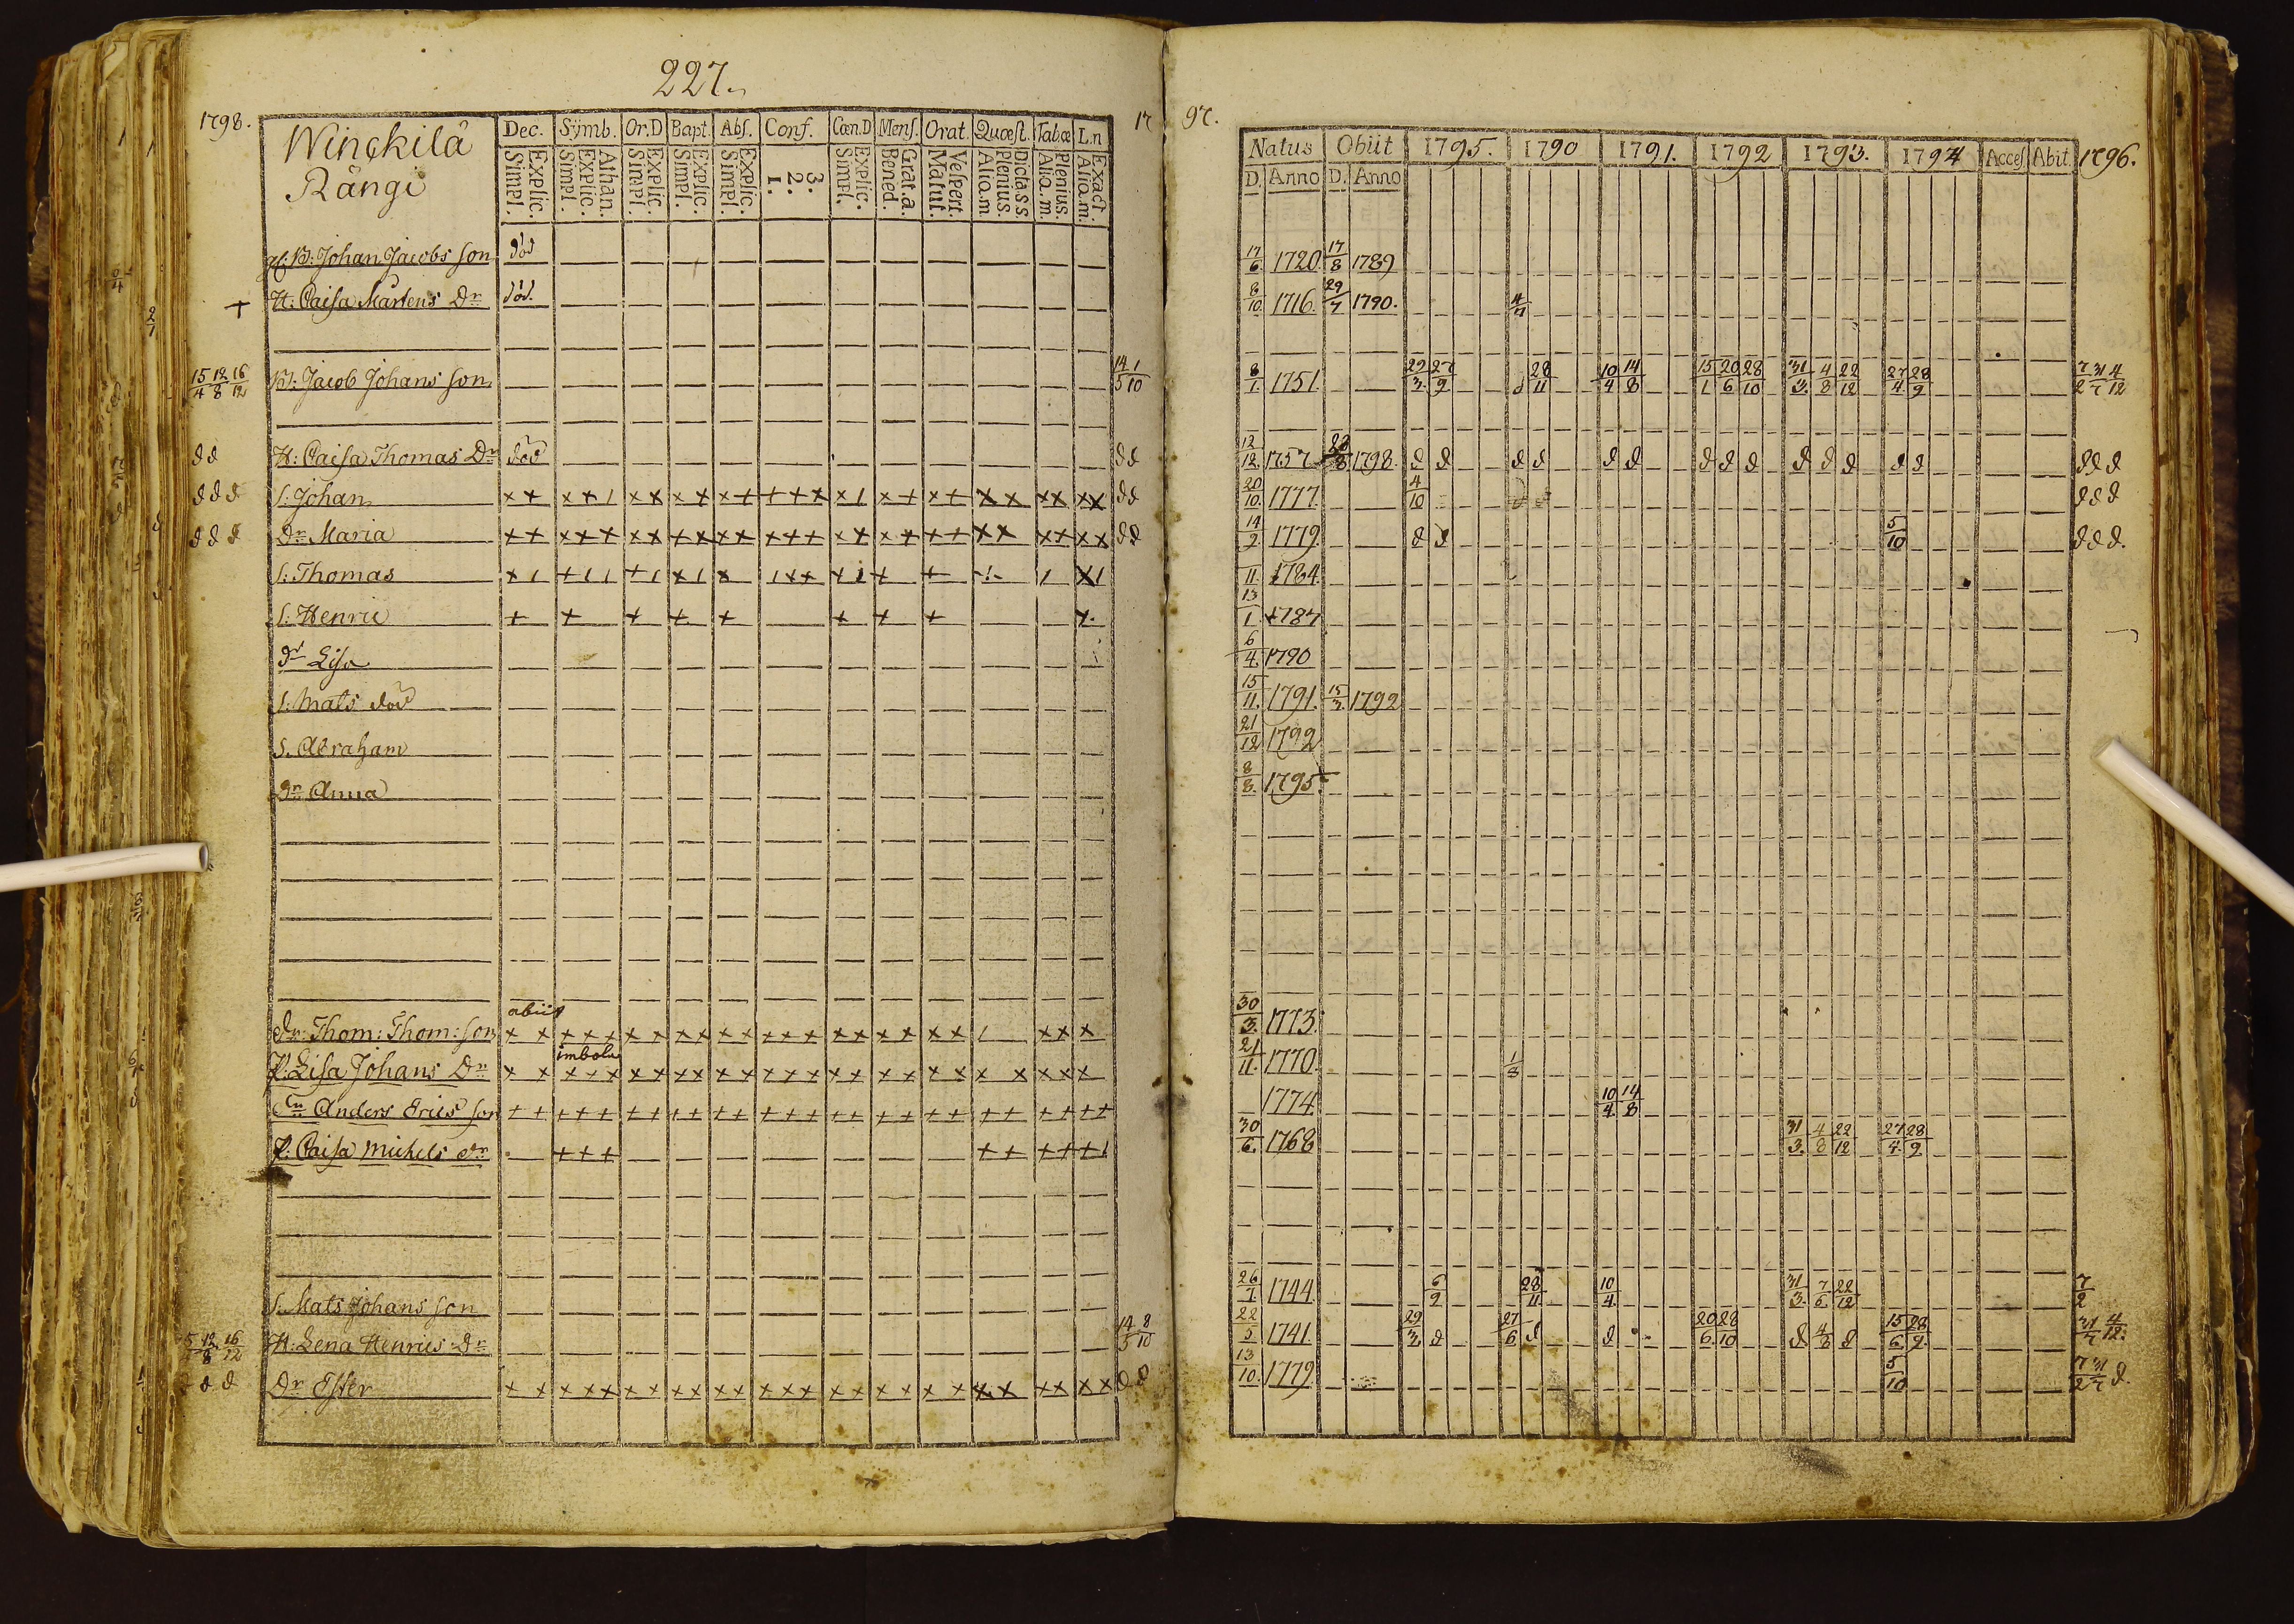 227.
1798.
1797.
Winckilä
Rängi
Dec. Symb. Or.D Bapt. Abs. Conf. Cœn.D Mens. Orat. Quæst. Tabæ L.n
Explic. Simpl. Athan. Explic. Simpl. Explic. Simpl. Explic. Simpl. Explic. Simpl. 3. 2. 1. Explic. Simpl. Grat.a. Bened. Vespert. Matut. Dictass. Plenius. Aliq.m. Plenius. Aliq.m. Exact. Aliq.m.
Natus Obiit 1795. 1790 1791. 1792 1793. 1794 Acces. Abit. 1796.
D. Anno D. Anno
B: Johan Jacobs son död 17/6 1720 17/8 1789
+ H: Caisa Mårtens Dr död 8/10 1716 29/7 1790.
15/4 12/8 16/12 B: Jacob Johans son 14/5 1/10 8/1 1751 29/3 27/9 28/11 10/4 14/8 15/1 20/6 28/10 31/3 4/8 22/12 27/4 28/9 7/2 31/7 4/12
d d H: Caisa Thomas Dr död d d 12/12 1757 1798. d d d d d d d d d d d d d d d d d
d d d S: Johan x x x x 1 x x x x x + + + x x 1 x + x + x x x x x x d d 20/10 1777 4/10 d d d
d d d Dr Maria + + x x x x x + x x x + + + x x x + + + x x x + x x d d 14/9 1779 d d 5/10 d d d.
S: Thomas x 1 + 1 1 + 1 x 1 x 1 x x + 1 + + 1 1 x 1 11 1784
S: Henric + + + + + + + + x 13/1 1787
dr Lisa 6/4 1790
S: Mats död 15/11 1791. 15/3 1792
S. Abraham 21/12 1792
dr Anna 8/8 1795
abiit
Dr: Thom: Thom: son x x x x x x x x x x x x x x x x x x x x 1 x x x 30/3 1773
imbola
P: Lisa Johans Dr x x x x x x x x x x x x x x x x x x x x x x x x x 21/11 1770 1/8
Anders Erics son + + + + + + + + + + + + + + + + + + + + + + + + + + 1774 10/4 14/8
P: Caisa Michels dr + + + + + + + + 1 30/6 1768 31/3 4/8 22/12 27/4 28/9
S. Mats Johans son 26/1 1744 6/9 28/11 10/4 31/3 7/6 22/12 7/2
5/4 12/8 16/12 H: Lena Henrics Dr 14/5 8/10 22/5 1741 29/3 d 27/6 d d 20/6 28/10 d 4/8 d 15/6 28/9 31/7 4/12
d d d Dr Ester x x x x x x x x x x x x x x x x x x x x x x x x x x d d 13/10 1779 5/10 7/2 31/7 d.